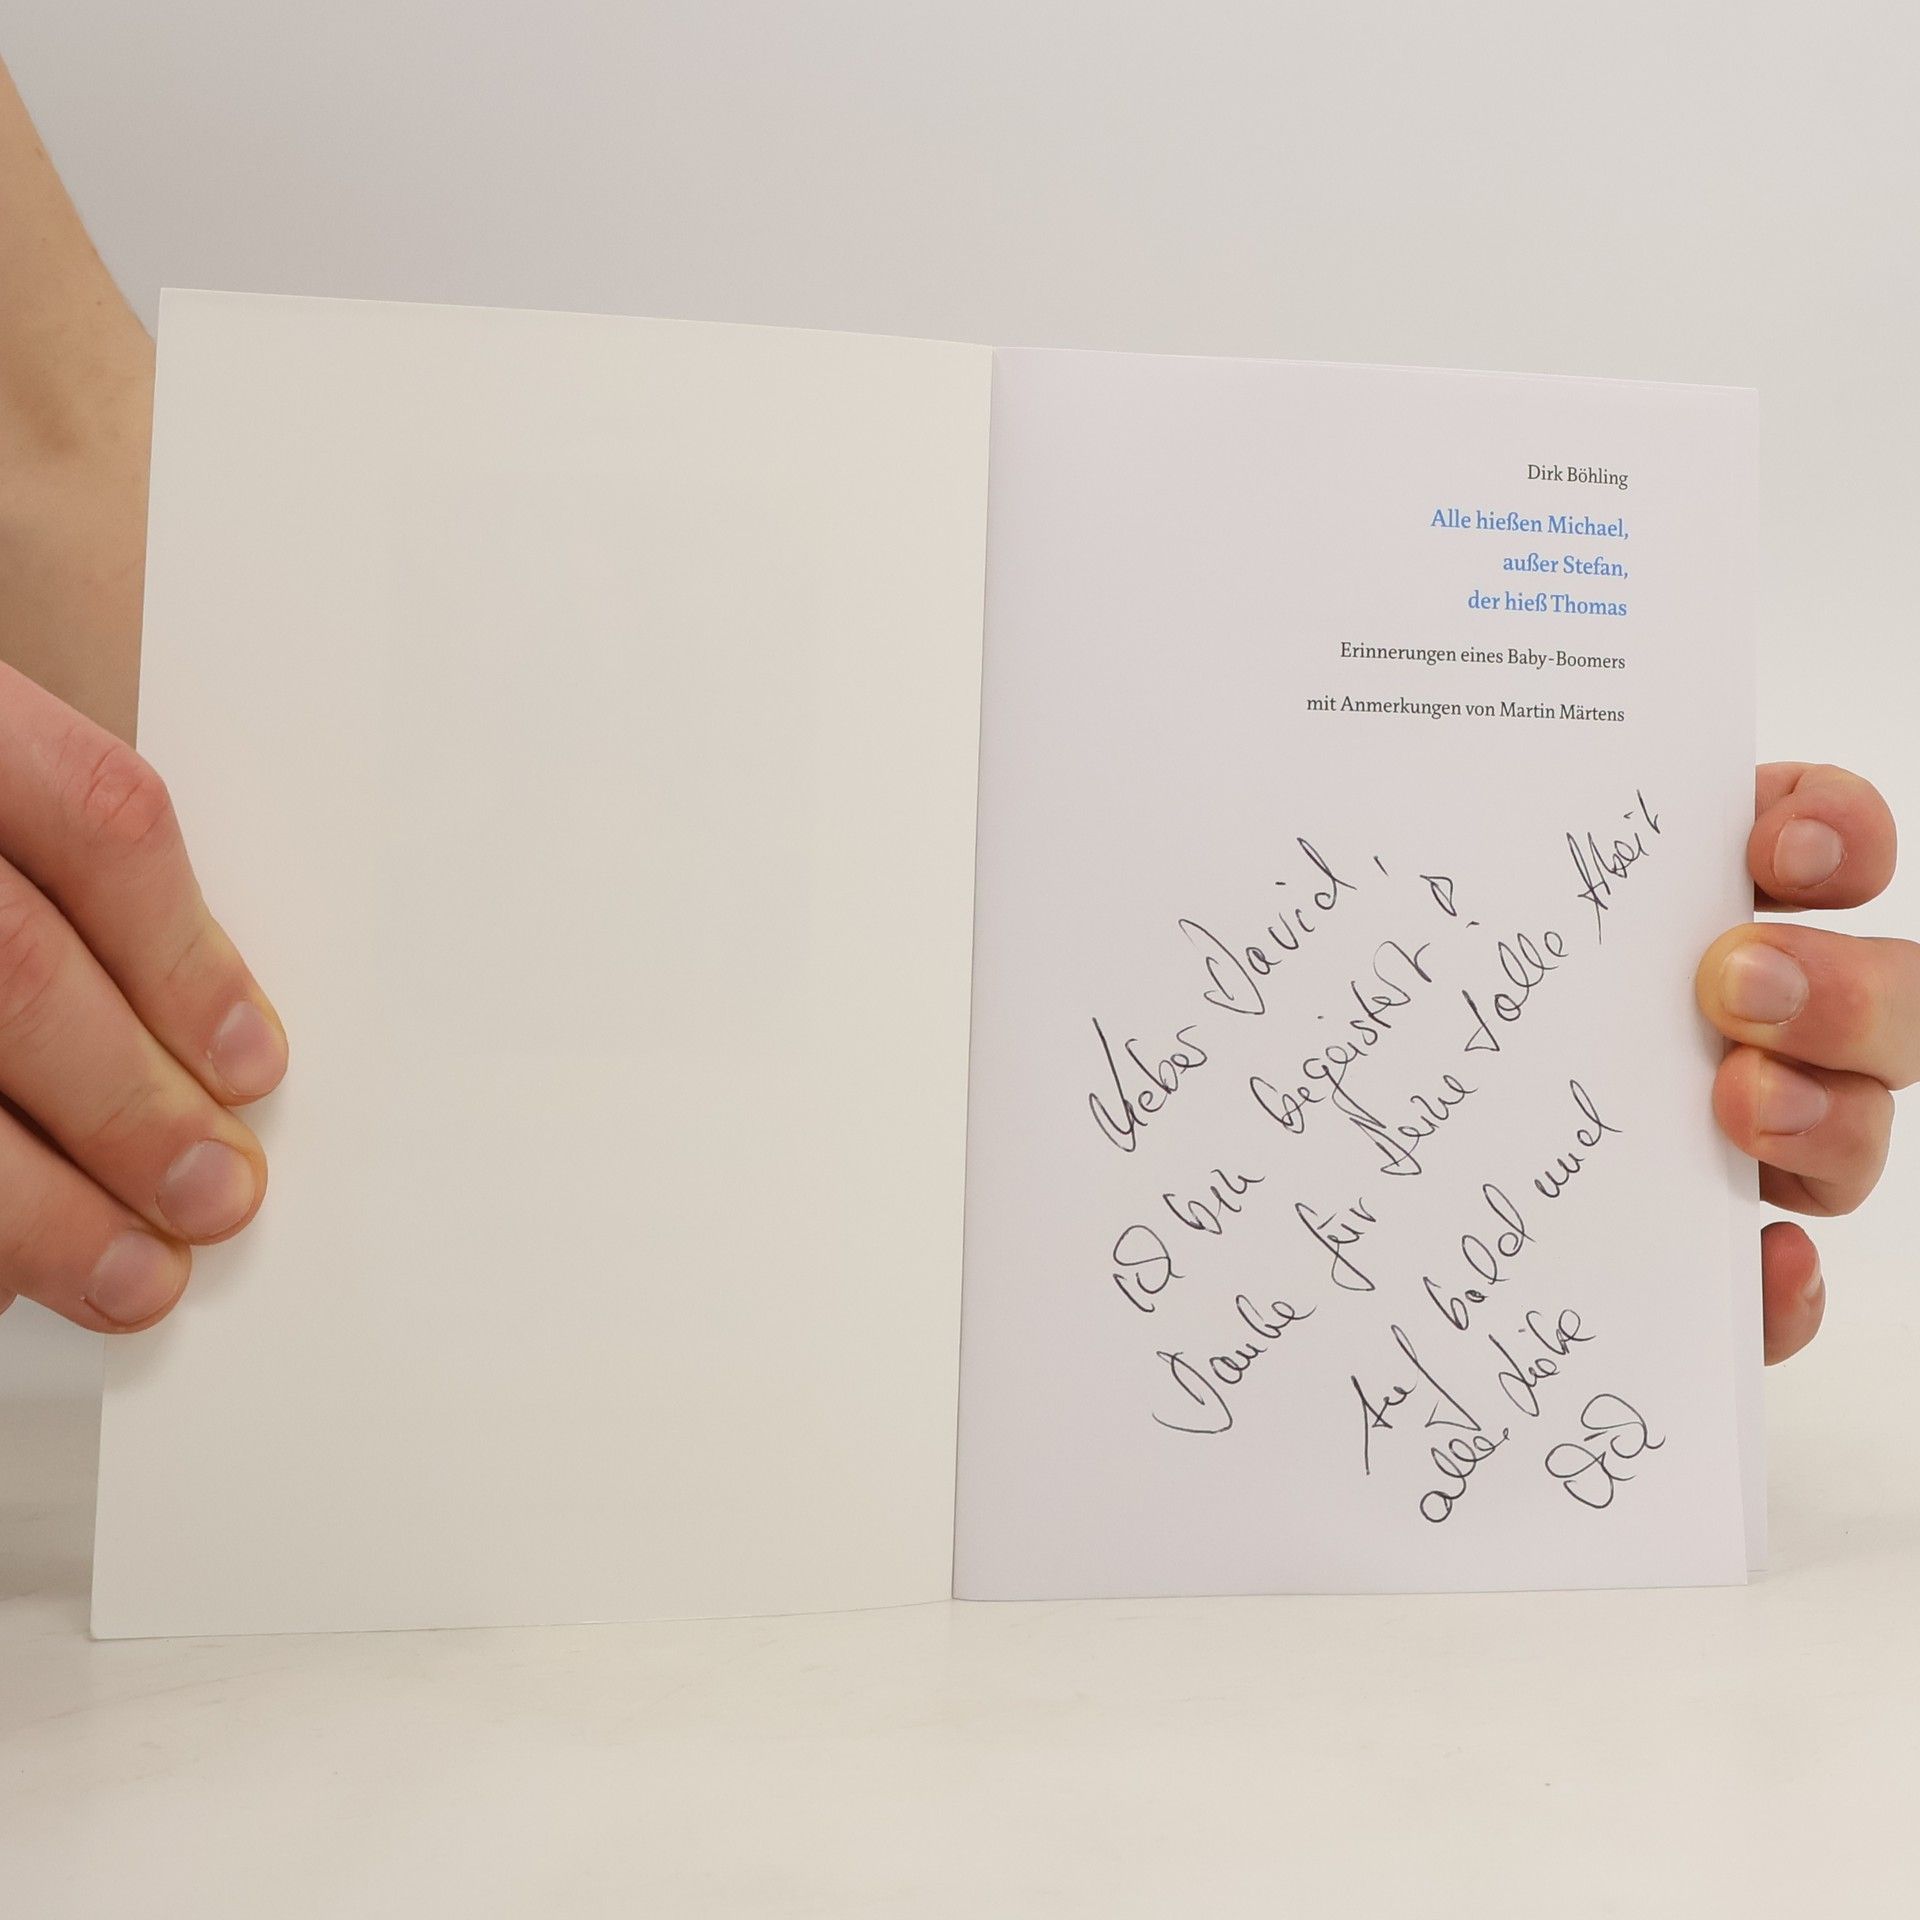 Dirk Böhling
Alle hießen Michael,
außer Stefan,
der hieß Thomas
Erinnerungen eines Baby-Boomers
mit Anmerkungen von Martin Märtens
Lieber David,
ich bin begeistert!
Danke für Deine tolle Arbeit
Auf bald und
alles Liebe